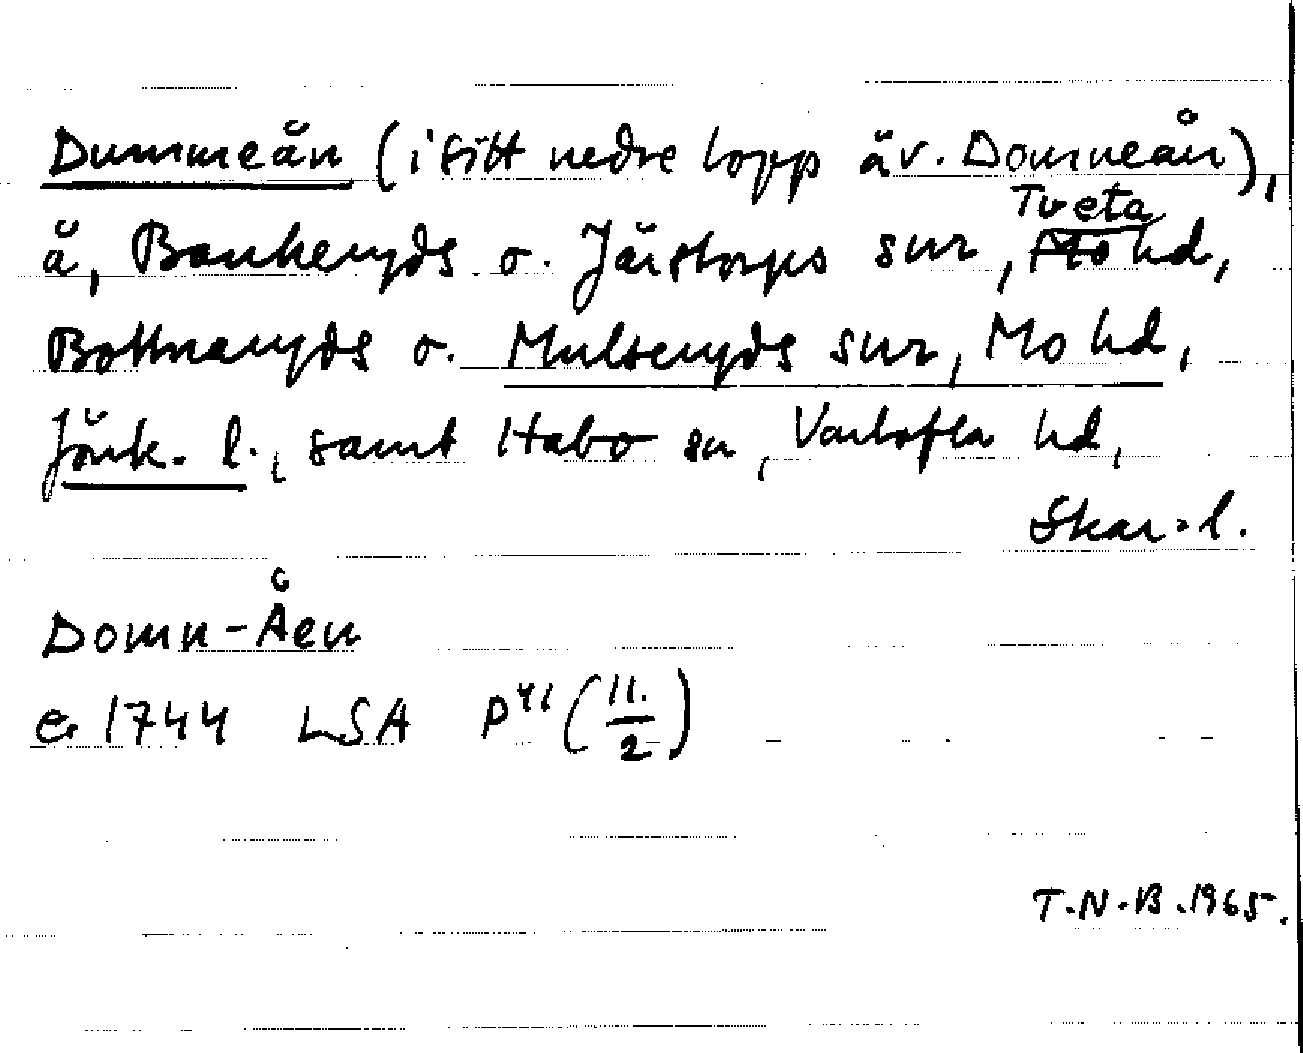 Dummeån (i sitt nedre lopp äv. Domneån),
å, Bankeryds o. Järstorps snr, Tveta hd,
Bottnaryds o. Mulseryds snr, Mo hd,
Jönk. l., samt Habo sn, Vartofta hd,
Skar. l.
Domn-Åen
e. 1744 LSA P41 (11./2)
T.N.B. 1965.